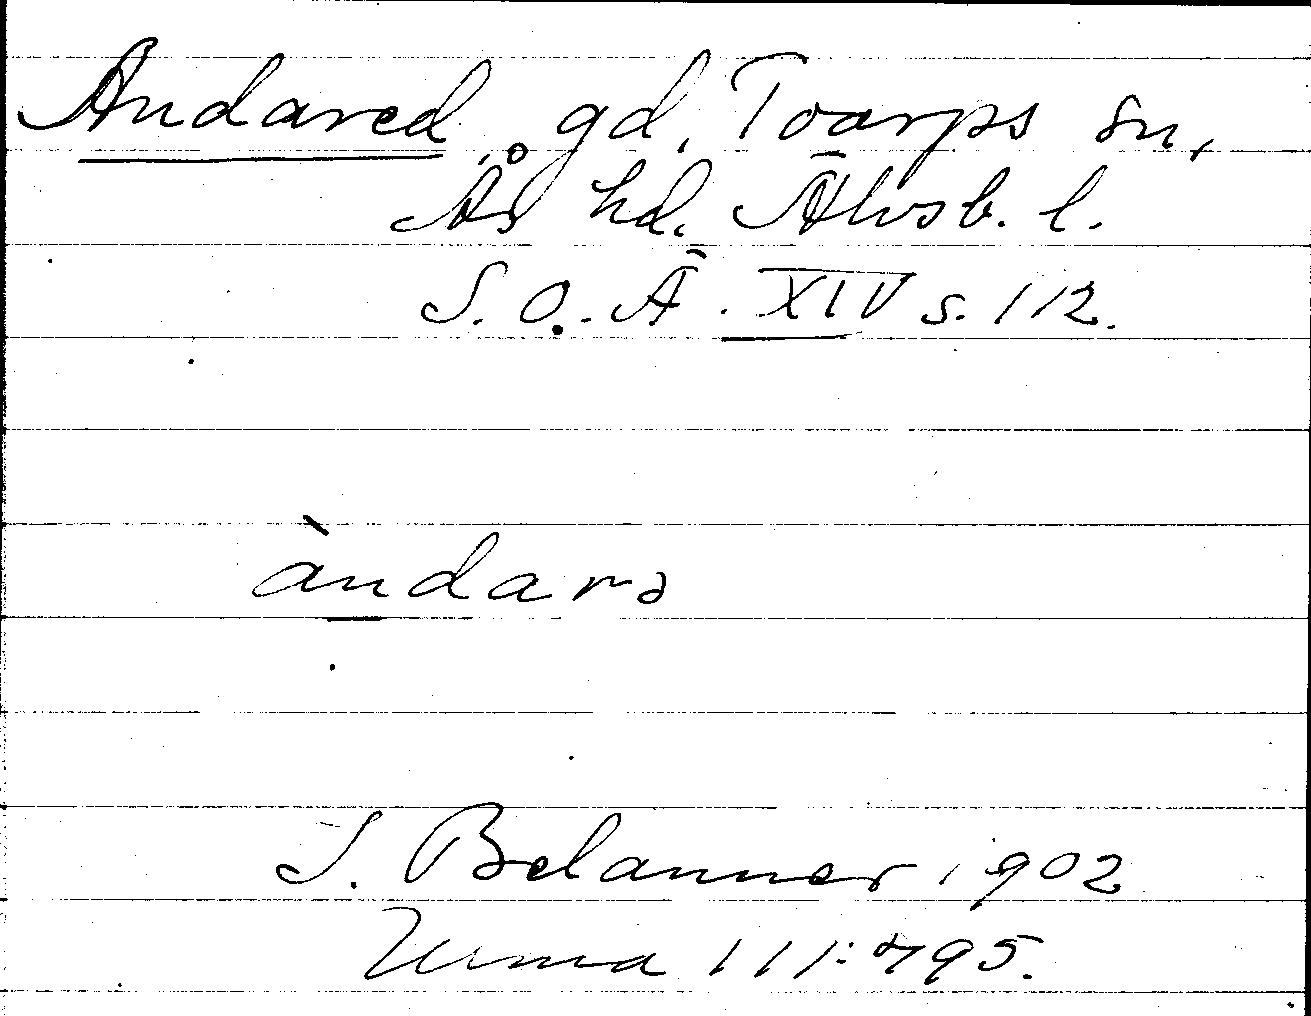 Andared, gd, Toarps sn,
Ås hd. Älvsb. l.
S. O. Ä. XIV s. 112.
àndarə
S. Belanner 1902